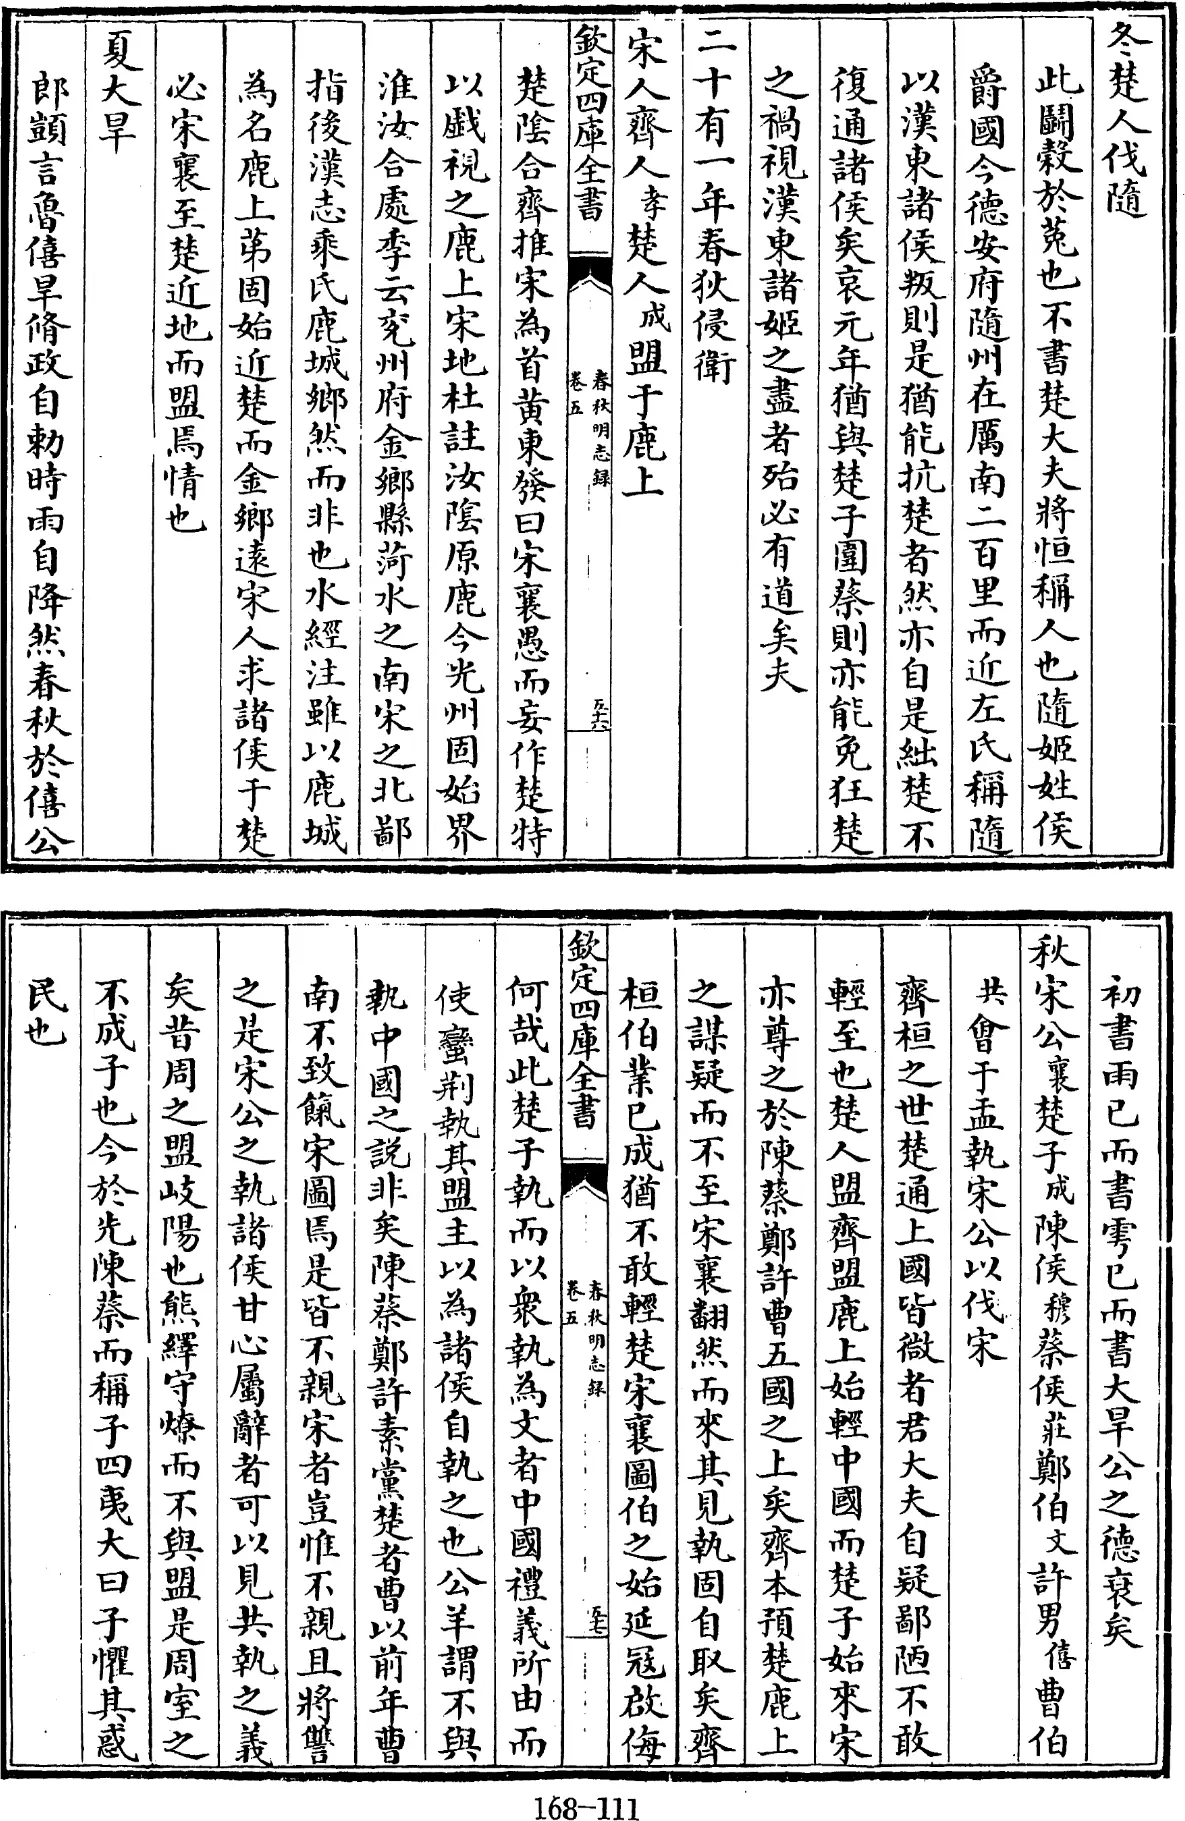 冬楚人伐隨
此鬬穀於菟也不書楚大夫將恒稱人也隨姬姓侯
爵國今德安府隨州在厲南二百里而近左氏稱隨
以漢東諸侯叛則是猶能抗楚者然亦自是絀楚不
復通諸侯矣哀元年猶與楚子圍蔡則亦能免狂楚
之禍視漢東諸姬之盡者殆必有道矣夫
二十有一年春狄侵衛
宋人齊人孝楚人成盟于鹿上
欽定四庫全書
春秋明志録
卷五
五十六
楚陰合齊推宋為首黄東發曰宋襄愚而妄作楚特
以戲視之鹿上宋地杜註汝陰原鹿今光州固始界
淮汝合處季云兗州府金鄉縣菏水之南宋之北鄙
指後漢志乘氏鹿城鄉然而非也水經注雖以鹿城
為名鹿上苐固始近楚而金鄉逺宋人求諸侯于楚
必宋襄至楚近地而盟焉情也
夏大旱
郎顗言魯僖旱脩政自勅時雨自降然春秋於僖公
初書雨已而書雩已而書大旱公之德衰矣
秋宋公襄楚子成陳侯穆蔡侯莊鄭伯文許男僖曹伯
共會于盂執宋公以伐宋
齊桓之世楚通上國皆微者君大夫自疑鄙陋不敢
輕至也楚人盟齊盟鹿上始輕中國而楚子始來宋
亦尊之於陳蔡鄭許曹五國之上矣齊本預楚鹿上
之謀疑而不至宋襄翻然而來其見執固自取矣齊
桓伯業已成猶不敢輕楚宋襄圖伯之始延冦啟侮
欽定四庫全書
春秋明志録
卷五
五十七
何哉此楚子執而以衆執為文者中國禮義所由而
使蠻荆執其盟主以為諸侯自執之也公羊謂不與
執中國之説非矣陳蔡鄭許素黨楚者曹以前年曹
南不致餼宋圖焉是皆不親宋者豈惟不親且將讐
之是宋公之執諸侯甘心屬辭者可以見共執之義
矣昔周之盟岐陽也熊繹守燎而不與盟是周室之
不成子也今於先陳蔡而稱子四夷大曰子懼其惑
民也
168-111